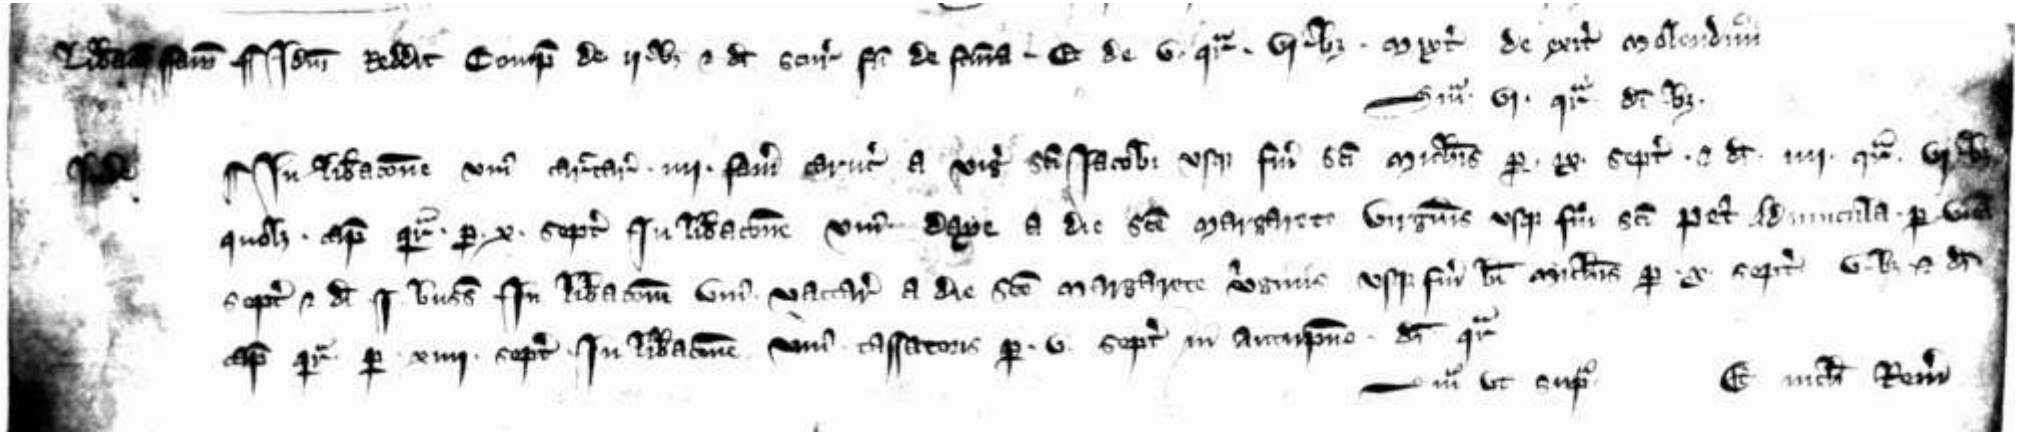 Lib̄ac̄ fam̄ Idm̄ Reddit Comp̄ de ii b; ⁊ dī de fār̄a Et de v. qr̄. vi b;. mixt̄ de exit̄ molendini
Sm̄ vi. qr̄ dī b;.
Inde In lib̄acōne uni᷒ carectar̄. iiii. fam̄ caruc̄ a viḡ sc̄i Jacobi usq; fm̄ sc̄i Mich̄is p̱. ix. sept̄. ⁊ dī. iiii. qr̄. vi b;
quol;. cap̄ qr̄. p̱. x. sept̄ In lib̄acōne uni᷒ daye a die sc̄e Margarete Virgīnis usq; fm̄ sc̄i Pet̄ Advincula. p̱
sept̄ ⁊ dī I buss̄ In lib̄acōne uni᷒ vaccar̄ a die sc̄e Margarete v̄ginis usq; fm̄ b̄i Mich̄is p̱. x. sept̄ v. b; ⁊ dī
cap̄ qr̄. p̱ xiiii. sept̄. In lib̄acōne uni᷒ tassatoris p̱. v. sept̄ in autupno. dī qr̄
Sm̄ ut sup̄ Et nich̄ Rem̄